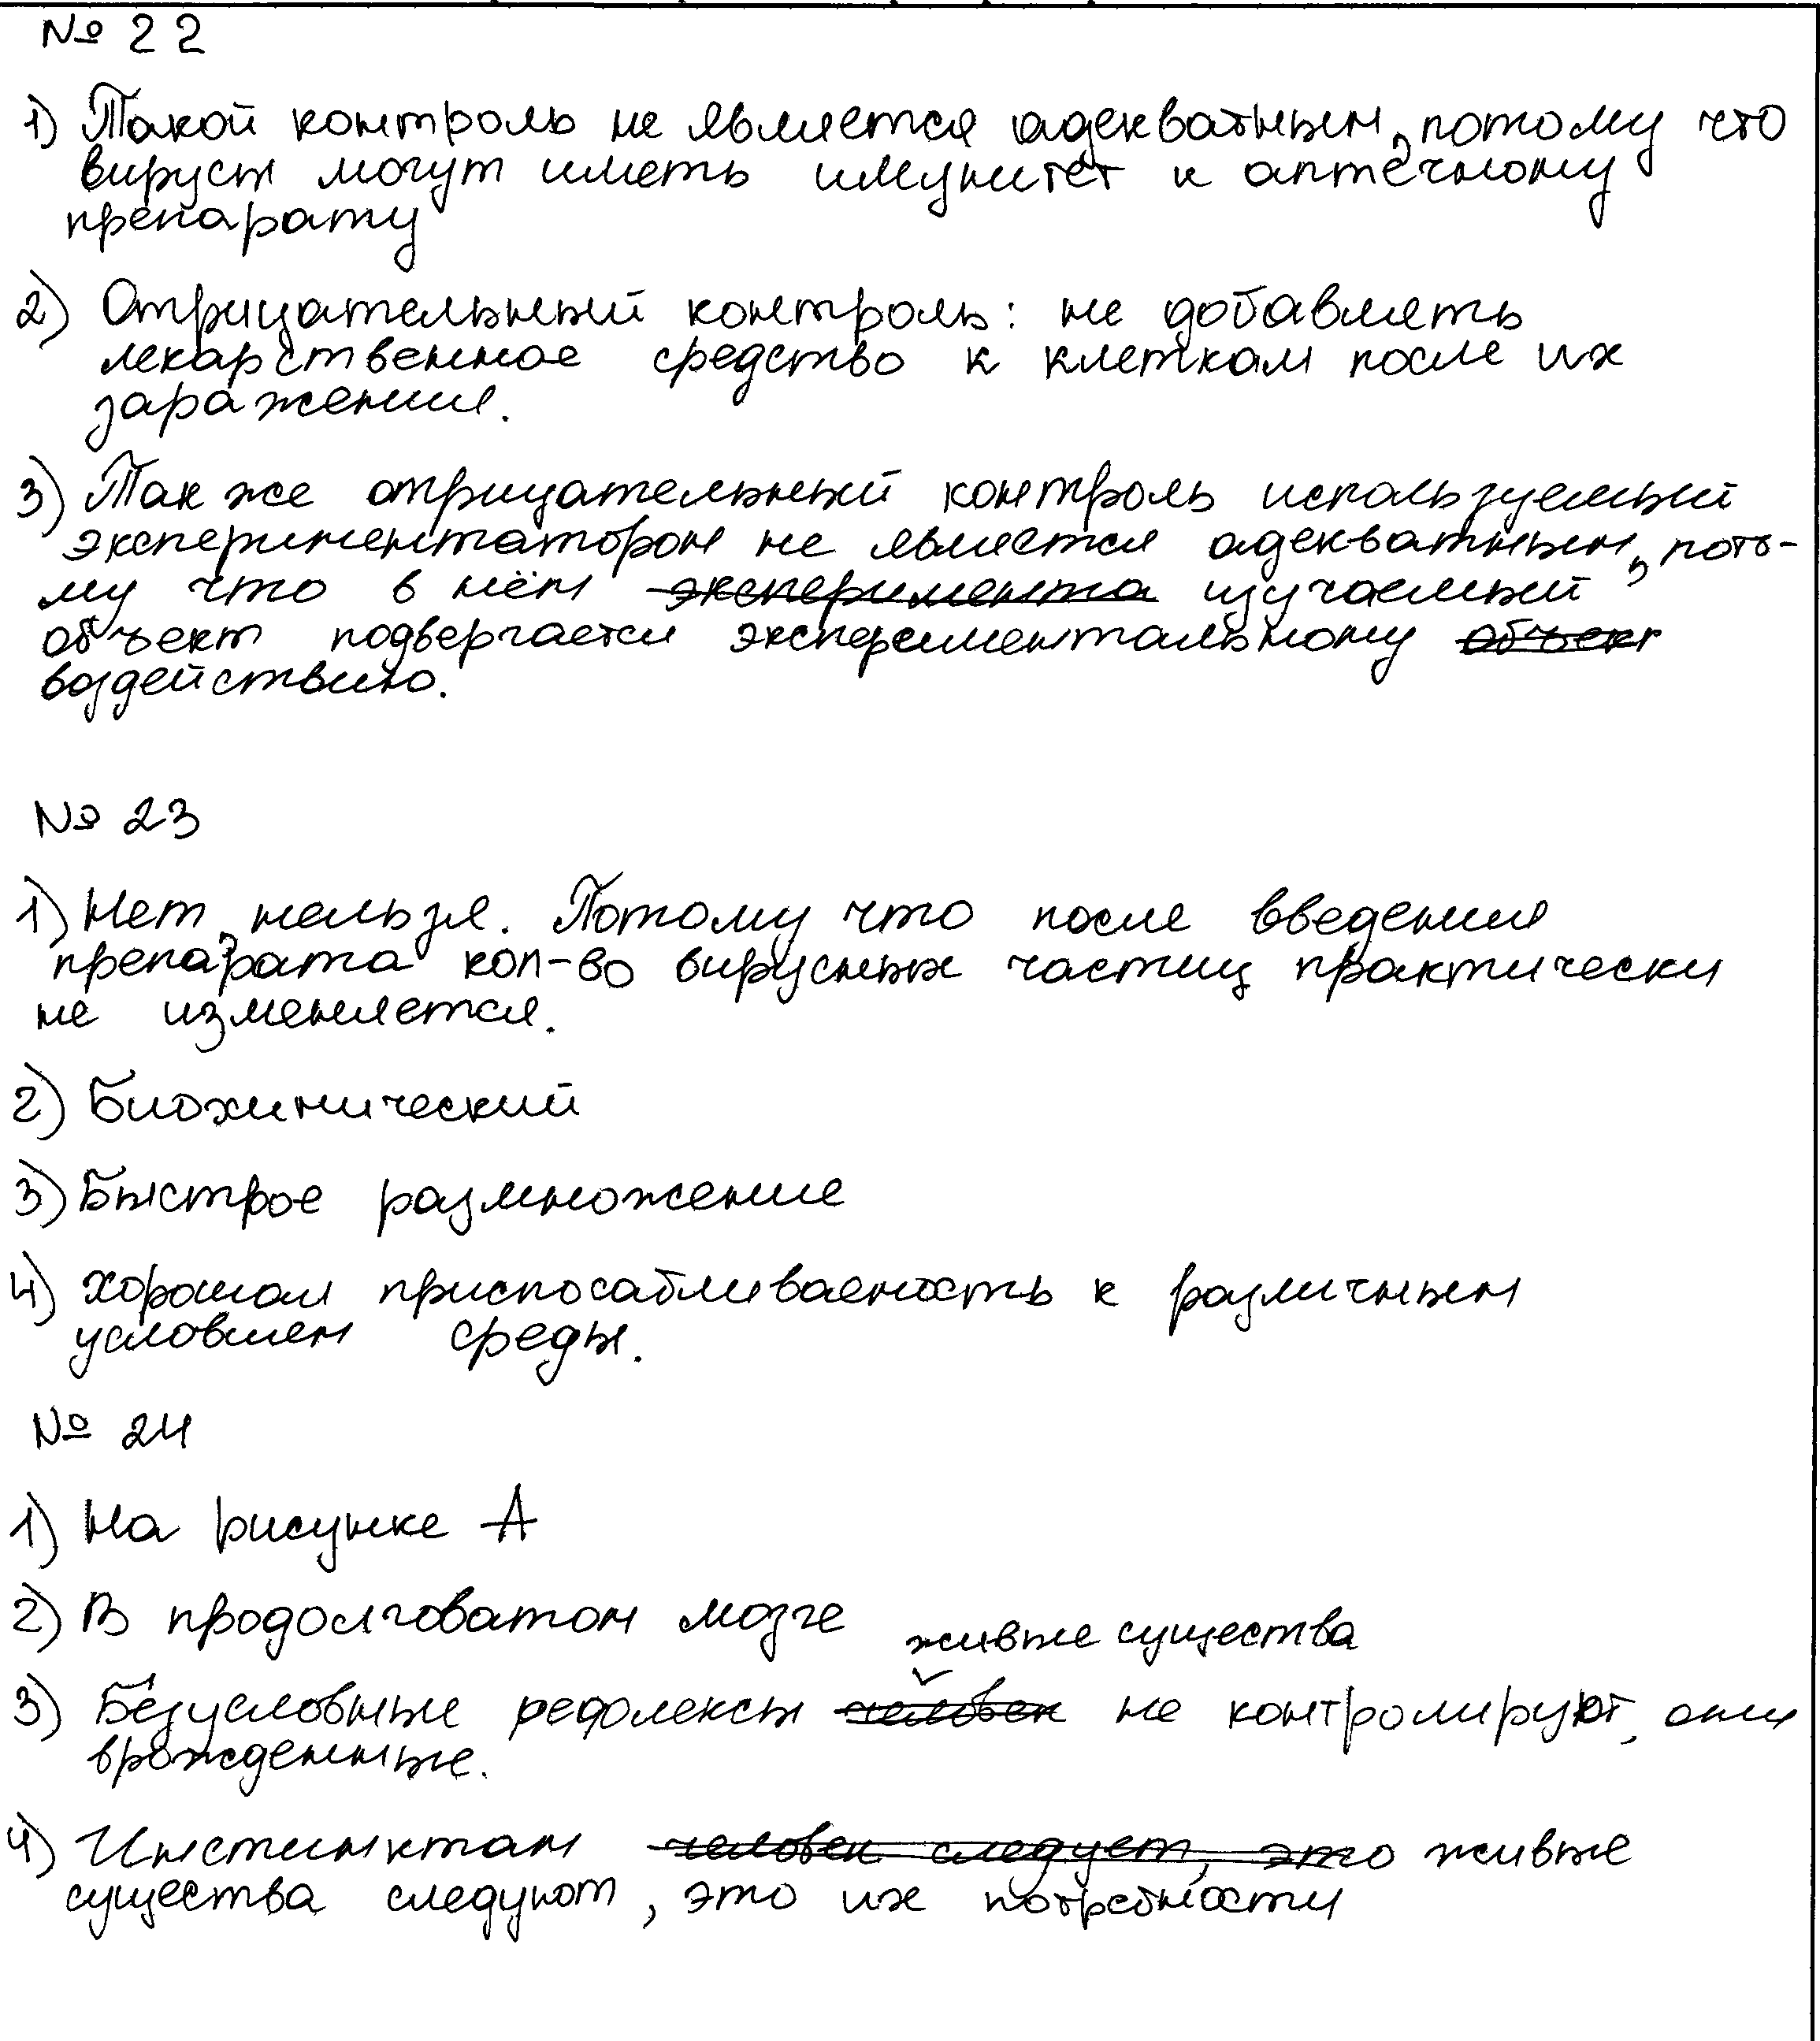 № 22
1) Такой контроль не является адекватным, потому что
вирусы могут иметь имунитет к аптечному
препарату
2) Отрицательный контроль: не добавлять
лекарственное средство к клеткам после их
заражения.
3) Так же отрицательный контроль используемый
экспериментатором не является адекватным, пото-
му что в нём эксперимента изучаемый
объект подвергается экспериментальному объект
воздействию.
№ 23
1) Нет, нельзя. Потому что после введения
препарата кол-во вирусных частиц практически
не изменяется.
2) Биохимический
3) Быстрое размножение
4) хорошая приспосабливаемость к различным
условиям среды.
№ 24
1) На рисунке А
2) В продолговатом мозге
живые существа
3) Безусловные рефлексы человек не контролируют, они
врожденные.
4) Инстинктам человек следует, это живые
существа следуют, это их потребности